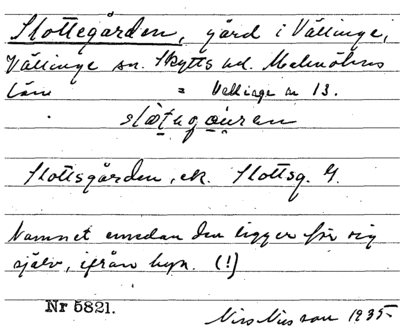 Slottegården, gård i Vällinge,
Vällinge sn. Skytts hd. Malmöhus
län = Vellinge nr 13.
Slottsgården, ek. Slottsg. G.
Namnet emedan den ligger för sig
själv, ifrån byn. (!)
Nr 5821.
Nils Nilsson 1935